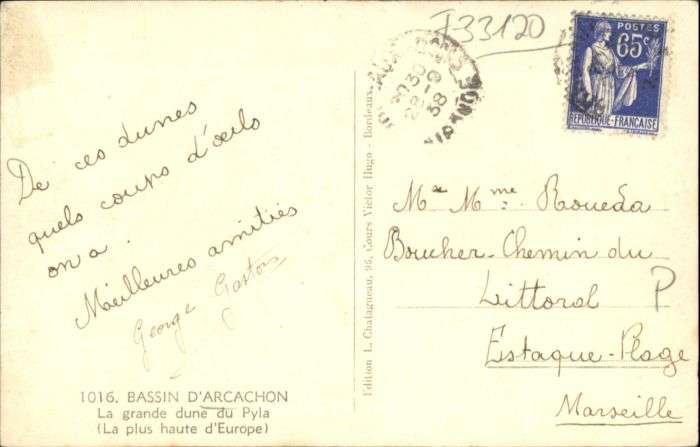 De ces dunes
quels coups d'œils
on a.
Meilleures amitiés
George Gaston
1016. BASSIN D'ARCACHON
La grande dune du Pyla
(La plus haute d'Europe)
Edition L. Chatagneau, 96, Cours Victor Hugo - Bordeaux
F33120
20 30
28-9
38
GIRONDE
POSTES
65c
REPUBLIQUE-FRANÇAISE
Mr Mme Raoueda
Boucher-Chemin du
Littoral P
Estaque-Plage
Marseille